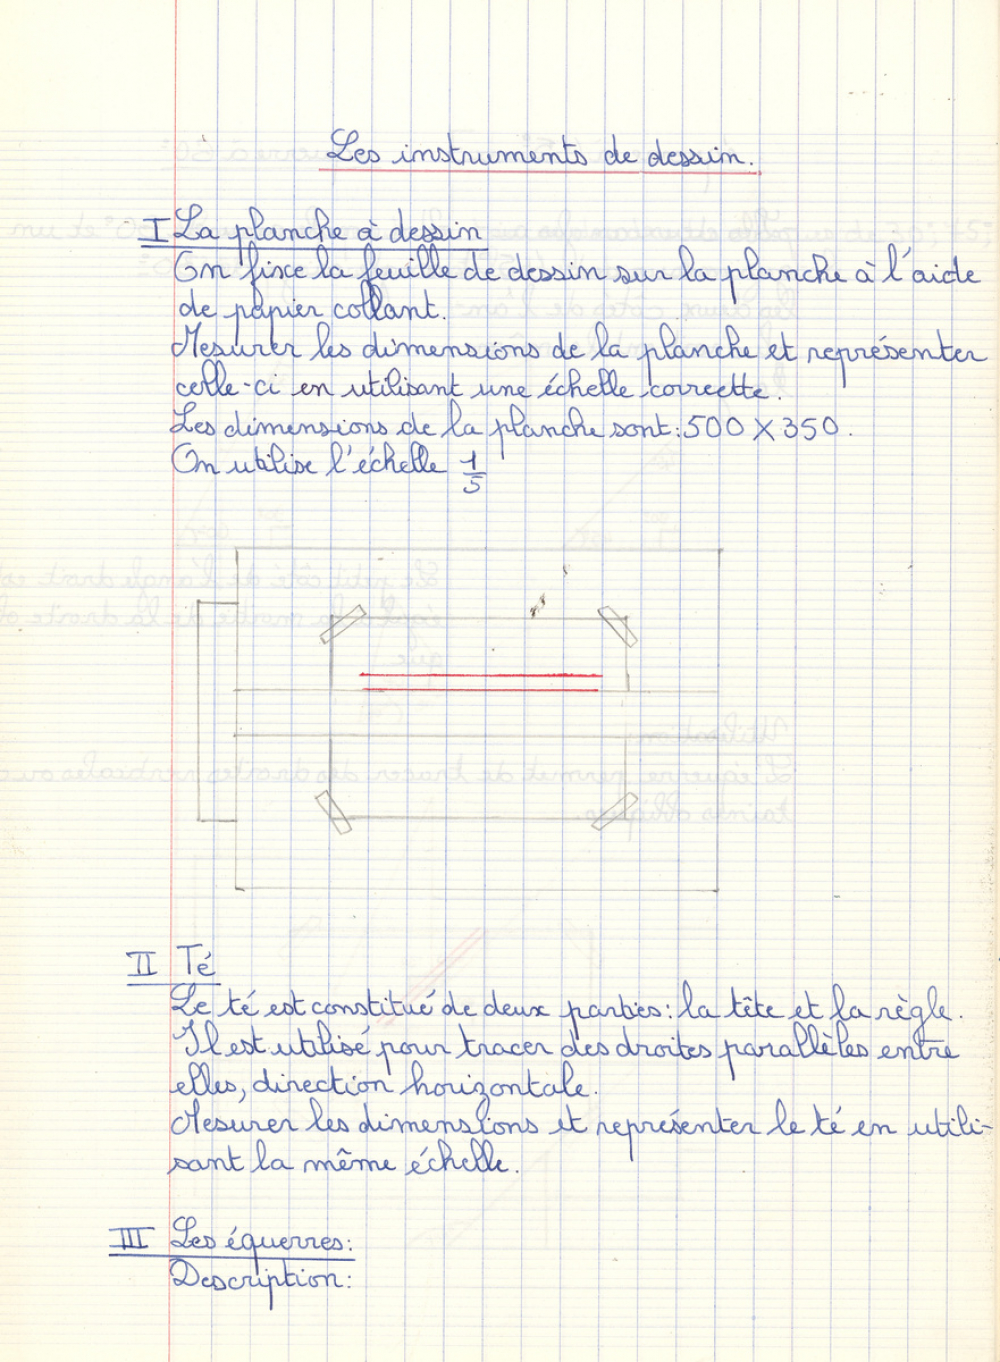 Les instruments de dessin.
I La planche à dessin
On fixe la feuille de dessin sur la planche à l'aide
de papier collant.
Mesurer les dimensions de la planche et représenter
celle-ci en utilisant une échelle correcte.
Les dimensions de la planche sont: 500 X 350.
On utilise l'échelle 1/5
II Té
Le té est constitué de deux parties: la tête et la règle.
Il est utilisé pour tracer des droites parallèles entre
elles, direction horizontale.
Mesurer les dimensions et représenter le té en utili-
sant la même échelle.
III Les équerres:
Description: